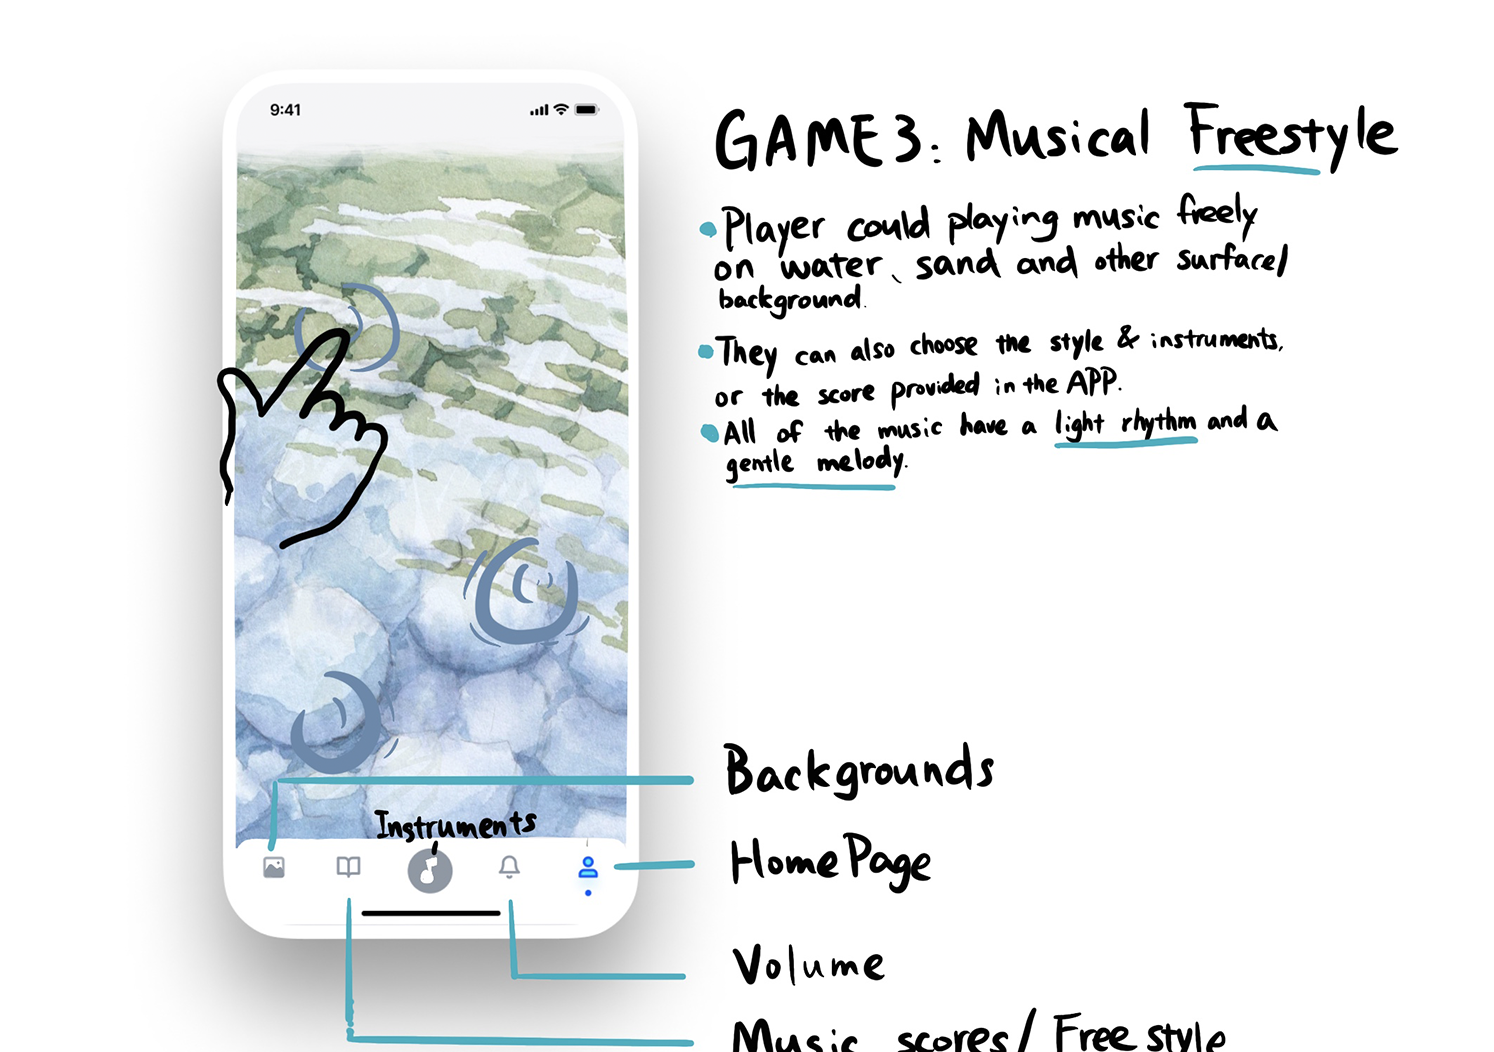 9:41
GAME3: Musical Freestyle
Player could playing music freely
on water、sand and other surface/
background.
They can also choose the style & instruments,
or the score provided in the APP.
All of the music have a light rhythm and a
gentle melody.
Backgrounds
Instruments
HomePage
Volume
Music scores/ Free style